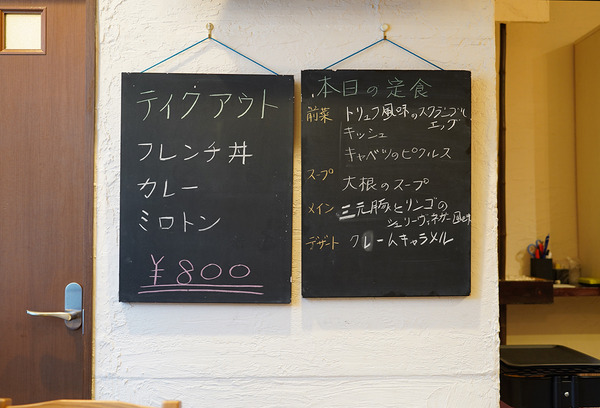 テイクアウト
フレンチ丼
カレー
ミロトン
¥800
本日の定食
前菜 トリュフ風味のスクランブル
エッグ
キッシュ
キャベツのピクルス
スープ 大根のスープ
メイン 三元豚とリンゴの
シェリーヴィネガー風味
デザート クレームキャラメル